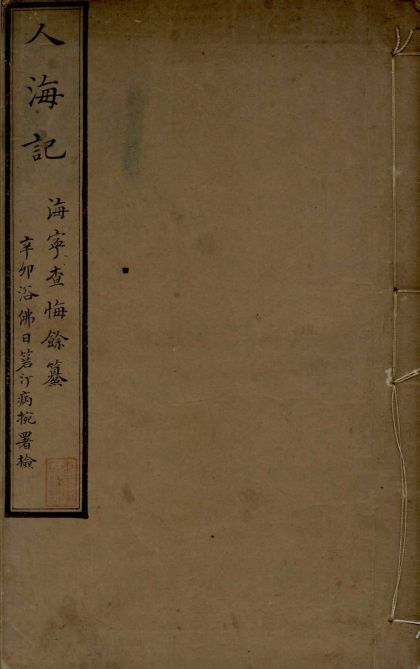 人海記
海寧查悔餘纂
辛卯浴佛日篛汀病捥署檢